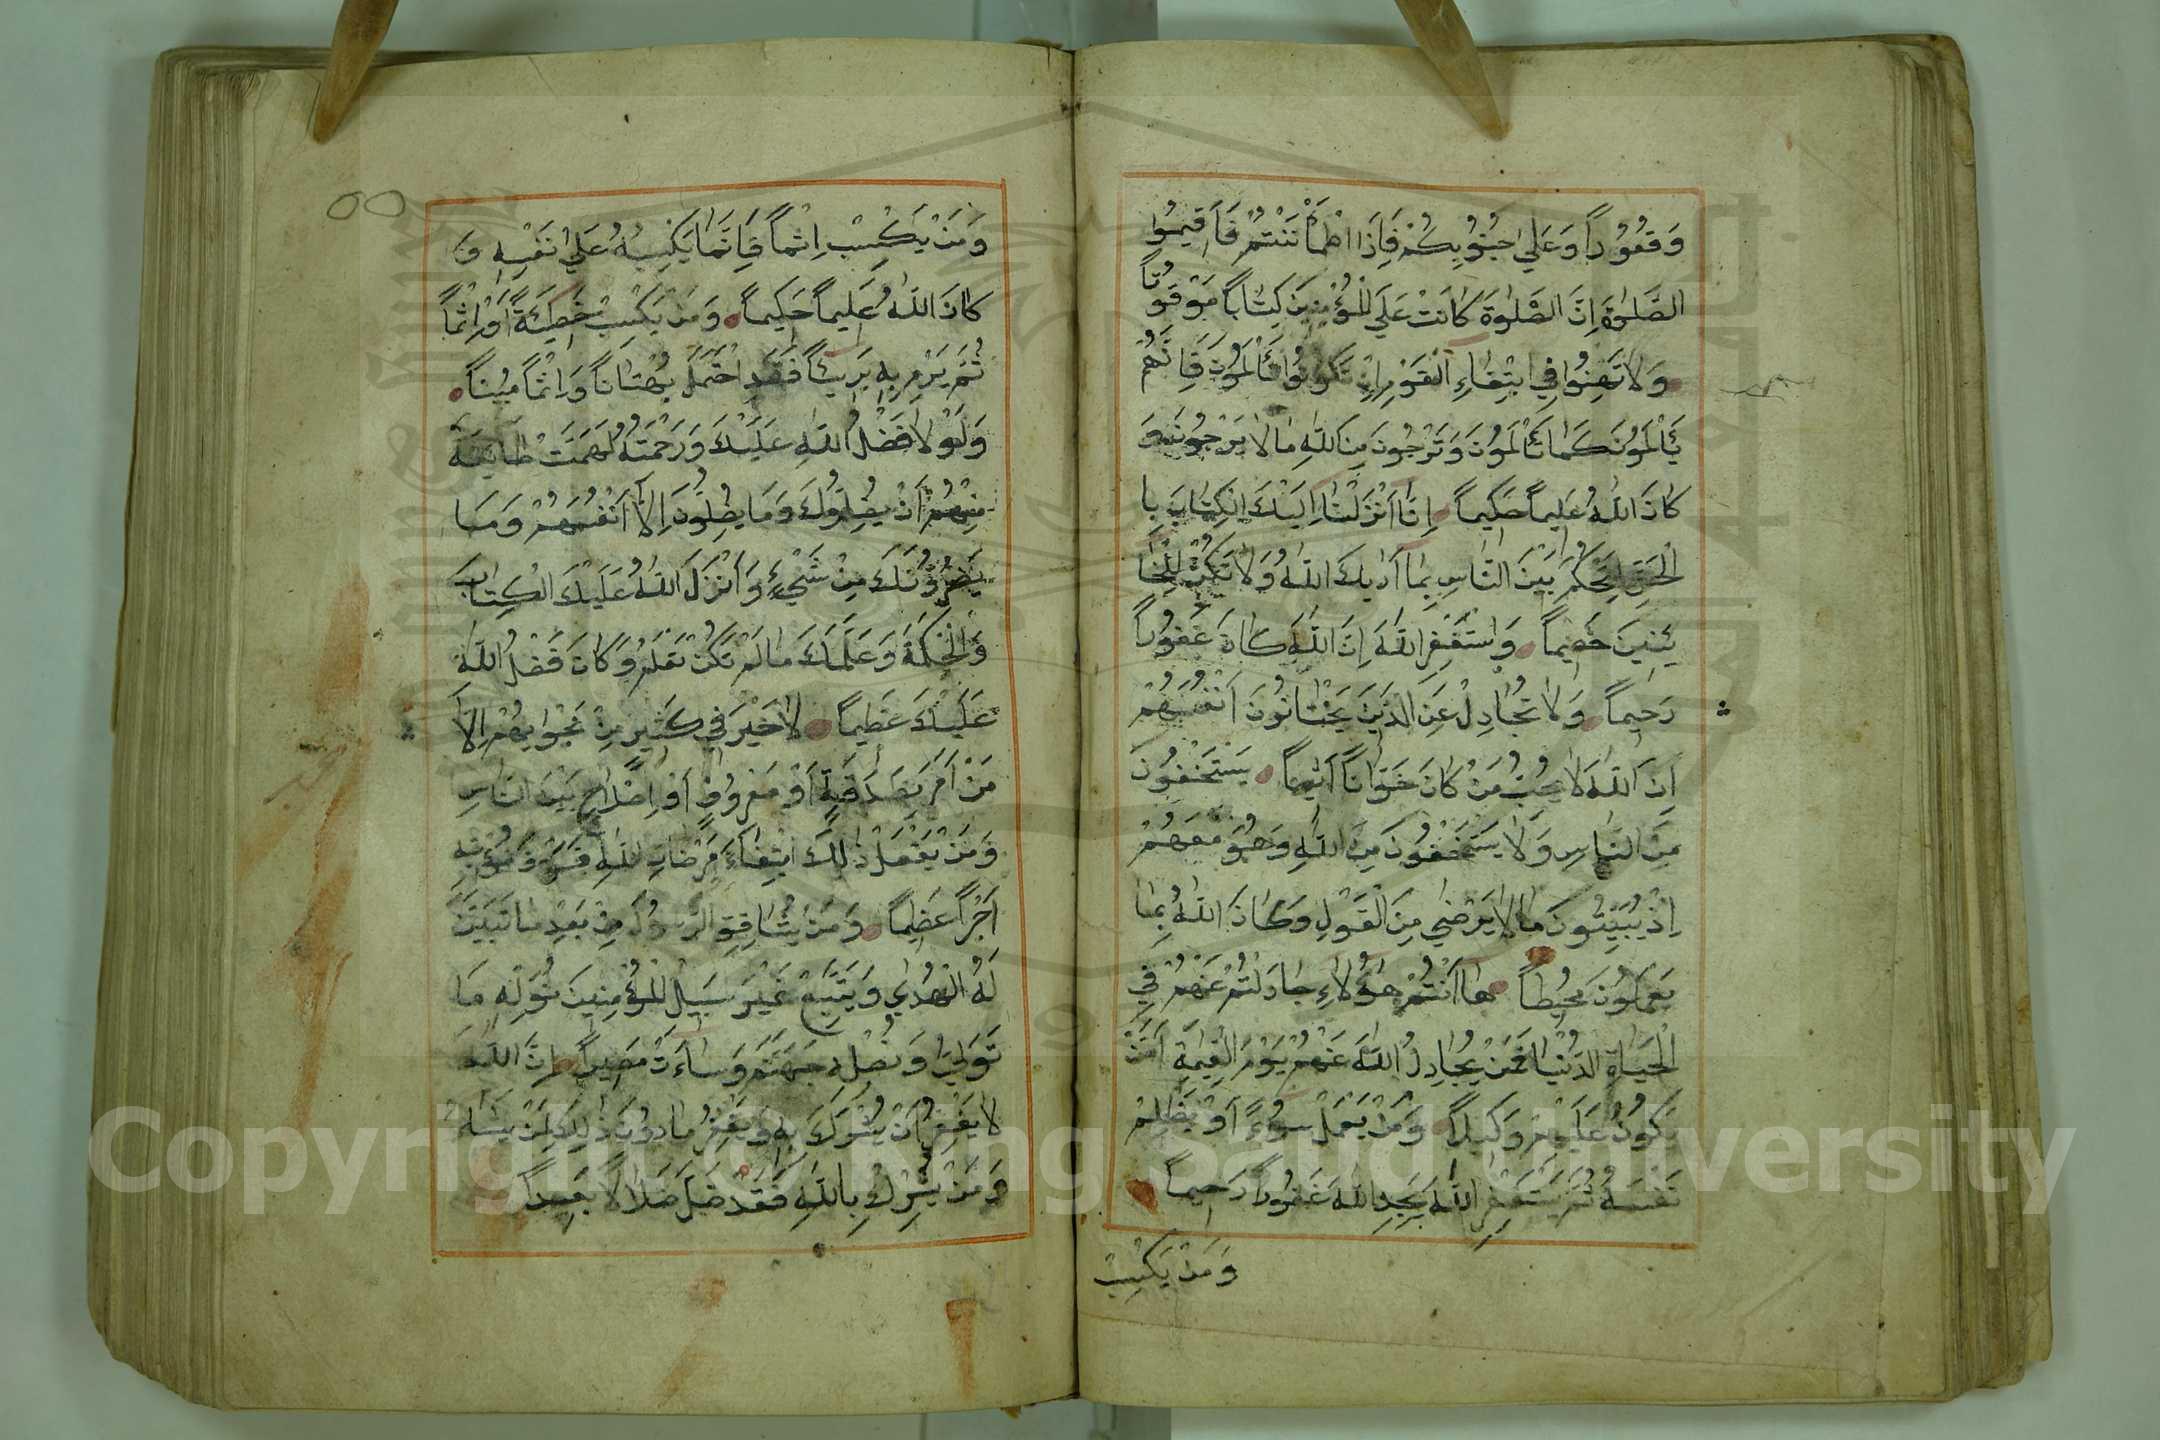 وَقُعُوُداً وَعَلٰي جُنُوُبِكُمْ فَاِذَا اطْمَأْنَنْتُمْ فَاَقِيمُوا
الصَّلٰوةَ اِنَّ الصَّلٰوةَ كَانَتْ عَلَي الْمُؤْمِنِينَ كِتَاباً مَوْقُوتاً
وَلَا تَهِنُوا فِي ابْتِغَاءِ الْقَوْمِ اِنْ تَكُونُوا تَأْلَمُونَ فَاِنَّهُمْ
يَأْلَمُونَ كَمَا تَأْلَمُونَ وَتَرْجُونَ مِنَ اللّٰهِ مَا لَا يَرْجُونَ وَ
كَانَ اللّٰهُ عَلِيماً حَكِيماً اِنَّا اَنْزَلْنَا اِلَيْكَ الْكِتَابَ بِا
لْحَقِّ لِتَحْكُمَ بَيْنَ النَّاسِ بِمَا اَرٰيكَ اللّٰهُ وَلَا تَكُنْ لِلْخَا
ئِنِينَ خَصِيماً وَاسْتَغْفِرِ اللّٰهَ اِنَّ اللّٰهَ كَانَ غَفُوُراً
رَحِيماً وَلَا تُجَادِلْ عَنِ الَّذِينَ يَخْتَانُونَ اَنْفُسَهُمْ
اِنَّ اللّٰهَ لَا يُحِبُّ مَنْ كَانَ خَوَّاناً اَثِيماً يَسْتَخْفُونَ
مِنَ النَّاسِ وَلَا يَسْتَخْفُونَ مِنَ اللّٰهِ وَهُوَ مَعَهُمْ
اِذْ يُبَيِّتُونَ مَا لَا يَرْضٰي مِنَ الْقَوْلِ وَكَانَ اللّٰهُ بِمَا
يَعْمَلُونَ مُحِيطاً هَا اَنْتُمْ هٰؤُلَاءِ جَادَلْتُمْ عَنْهُمْ فِي
الْحَيَاةِ الدُّنْيَا فَمَنْ يُجَادِلُ اللّٰهَ عَنْهُمْ يَوْمَ الْقِيٰمَةِ اَمَّنْ
يَكُونُ عَلَيْهِمْ وَكِيلاً وَمَنْ يَعْمَلْ سُوُءً اَوْ يَظْلِمْ
نَفْسَهُ ثُمَّ يَسْتَغْفِرِ اللّٰهَ يَجِدِ اللّٰهَ غَفُوُراً رَحِيماً
وَمَنْ يَكْسِبْ
وَمَنْ يَكْسِبْ اِثْماً فَاِنَّمَا يَكْسِبُهُ عَلٰي نَفْسِهِ وَ
كَانَ اللّٰهُ عَلِيماً حَكِيماً وَمَنْ يَكْسِبْ خَطِيئَةً اَوْ اِثْماً
ثُمَّ يَرْمِ بِهِ بَرِيئاً فَقَدِ احْتَمَلَ بُهْتَاناً وَاِثْماً مُبِيناً
وَلَوْلَا فَضْلُ اللّٰهِ عَلَيْكَ وَرَحْمَتُهُ لَهَمَّتْ طَائِفَةٌ
مِنْهُمْ اَنْ يُضِلُّوكَ وَمَا يُضِلُّونَ اِلَّا اَنْفُسَهُمْ وَمَا
يَضُرُّونَكَ مِنْ شَيْءٍ وَاَنْزَلَ اللّٰهُ عَلَيْكَ الْكِتَابَ
وَالْحِكْمَةَ وَعَلَّمَكَ مَا لَمْ تَكُنْ تَعْلَمُ وَكَانَ فَضْلُ اللّٰهِ
عَلَيْكَ عَظِيماً لَا خَيْرَ فِي كَثِيرٍ مِنْ نَجْوٰيهُمْ اِلَّا
مَنْ اَمَرَ بِصَدَقَةٍ اَوْ مَعْرُوفٍ اَوْ اِصْلَاحٍ بَيْنَ النَّاسِ
وَمَنْ يَفْعَلْ ذٰلِكَ ابْتِغَاءَ مَرْضَاتِ اللّٰهِ فَسَوْفَ نُؤْتِيهِ
اَجْراً عَظِيماً وَمَنْ يُشَاقِقِ الرَّسُولَ مِنْ بَعْدِ مَا تَبَيَّنَ
لَهُ الْهُدٰي وَيَتَّبِعْ غَيْرَ سَبِيلِ الْمُؤْمِنِينَ نُوَلِّهِ مَا
تَوَلّٰي وَنُصْلِهِ جَهَنَّمَ وَسَاءَتْ مَصِيراً اِنَّ اللّٰهَ
لَا يَغْفِرُ اَنْ يُشْرَكَ بِهِ وَيَغْفِرُ مَا دُونَ ذٰلِكَ لِمَنْ يَشَاءُ
وَمَنْ يُشْرِكْ بِاللّٰهِ فَقَدْ ضَلَّ ضَلَالاً بَعِيداً
Copyright © King Saud University